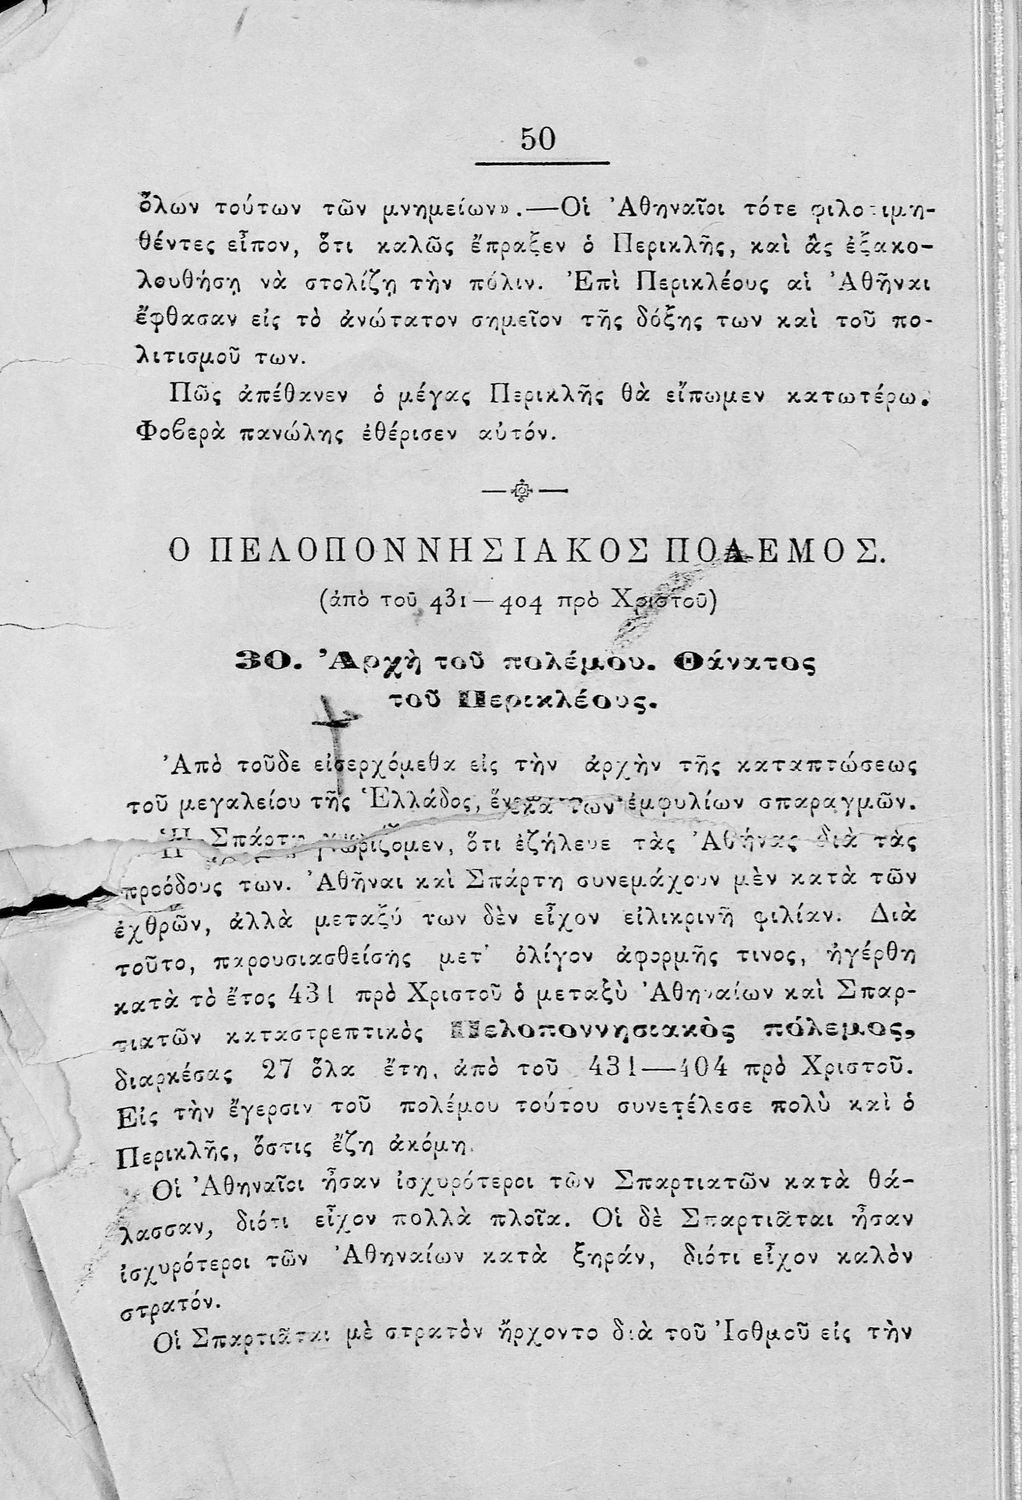 50
ὅλων τούτων τῶν μνημείων».—Οἱ Ἀθηναῖοι τότε φιλοτιμη-
θέντες εἶπον, ὅτι καλῶς ἔπραξεν ὁ Περικλῆς, καὶ ἂς ἐξακο-
λουθήσῃ νὰ στολίζῃ τὴν πόλιν. Ἐπὶ Περικλέους αἱ Ἀθῆναι
ἔφθασαν εἰς τὸ ἀνώτατον σημεῖον τῆς δόξης των καὶ τοῦ πο-
λιτισμοῦ των.
Πῶς ἀπέθανεν ὁ μέγας Περικλῆς θὰ εἴπωμεν κατωτέρω.
Φοβερὰ πανώλης ἐθέρισεν αὐτόν.
Ο ΠΕΛΟΠΟΝΝΗΣΙΑΚΟΣ ΠΟΛΕΜΟΣ.
(ἀπὸ τοῦ 431—404 πρὸ Χριστοῦ)
30. Ἀρχὴ τοῦ πολέμου. Θάνατος
τοῦ Περικλέους.
Ἀπὸ τοῦδε εἰσερχόμεθα εἰς τὴν ἀρχὴν τῆς καταπτώσεως
τοῦ μεγαλείου τῆς Ἑλλάδος, ἕνεκα των ἐμφυλίων σπαραγμῶν.
Ἡ Σπάρτη γνωρίζομεν, ὅτι ἐζήλευε τὰς Ἀθήνας διὰ τὰς
προόδους των. Ἀθῆναι καὶ Σπάρτη συνεμάχουν μὲν κατὰ τῶν
ἐχθρῶν, ἀλλὰ μεταξύ των δὲν εἶχον εἰλικρινῆ φιλίαν. Διὰ
τοῦτο, παρουσιασθείσης μετ' ὀλίγον ἀφορμῆς τινος, ἠγέρθη
κατὰ τὸ ἔτος 431 πρὸ Χριστοῦ ὁ μεταξὺ Ἀθηναίων καὶ Σπαρ-
τιατῶν καταστρεπτικὸς Πελοποννησιακὸς πόλεμος,
διαρκέσας 27 ὅλα ἔτη, ἀπὸ τοῦ 431—404 πρὸ Χριστοῦ.
Εἰς τὴν ἔγερσιν τοῦ πολέμου τούτου συνετέλεσε πολὺ καὶ ὁ
Περικλῆς, ὅστις ἔζη ἀκόμη.
Οἱ Ἀθηναῖοι ἦσαν ἰσχυρότεροι τῶν Σπαρτιατῶν κατὰ θά-
λασσαν, διότι εἶχον πολλὰ πλοῖα. Οἱ δὲ Σπαρτιᾶται ἦσαν
ἰσχυρότεροι τῶν Ἀθηναίων κατὰ ξηράν, διότι εἶχον καλὸν
στρατόν.
Οἱ Σπαρτιᾶται μὲ στρατὸν ἤρχοντο διὰ τοῦ Ἰσθμοῦ εἰς τὴν